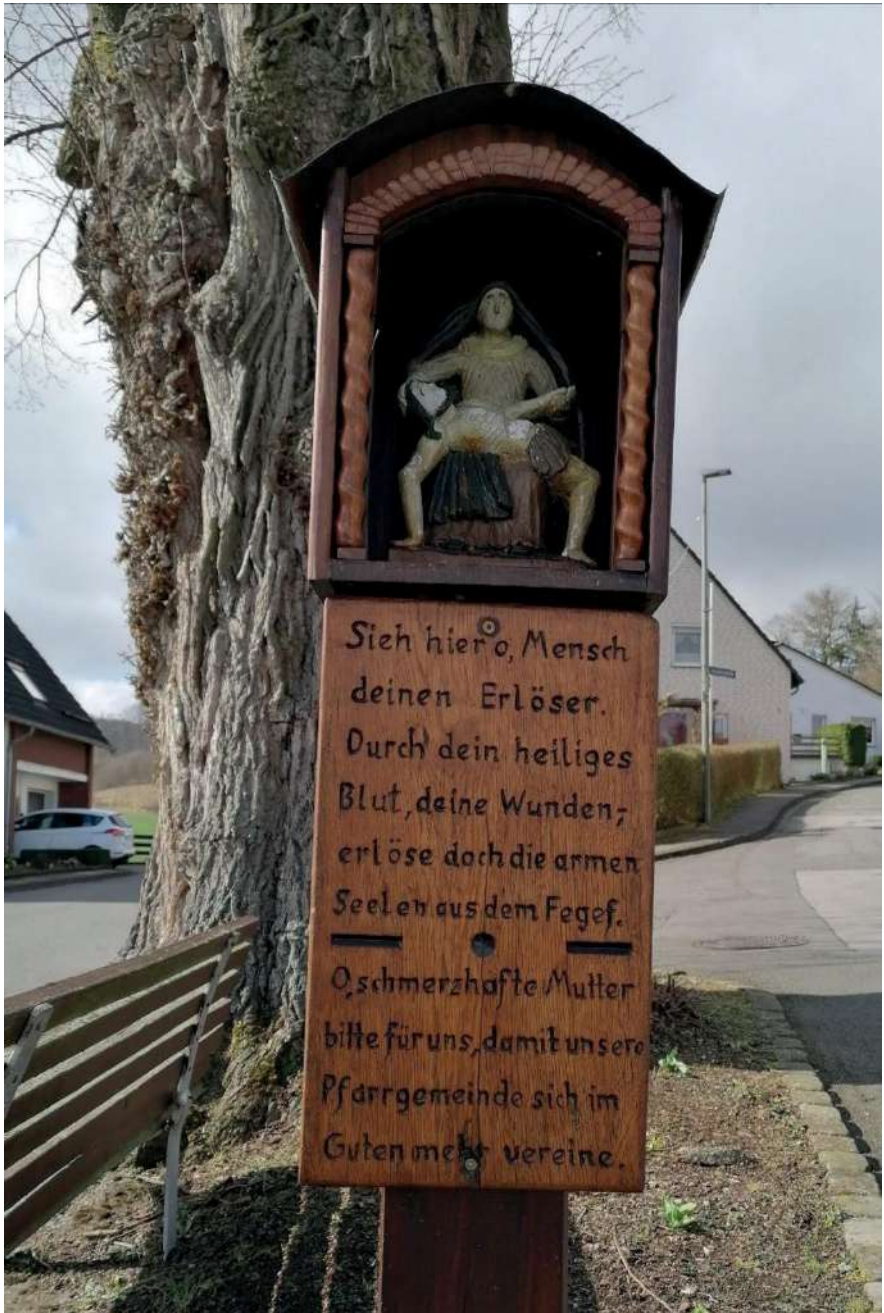 Sieh hier o, Mensch
deinen Erlöser.
Durch dein heiliges
Blut, deine Wunden,
erlöse doch die armen
Seelen aus dem Fegef.
O, schmerzhafte Mutter
bitte für uns, damit unsere
Pfarrgemeinde sich im
Guten mehr vereine.